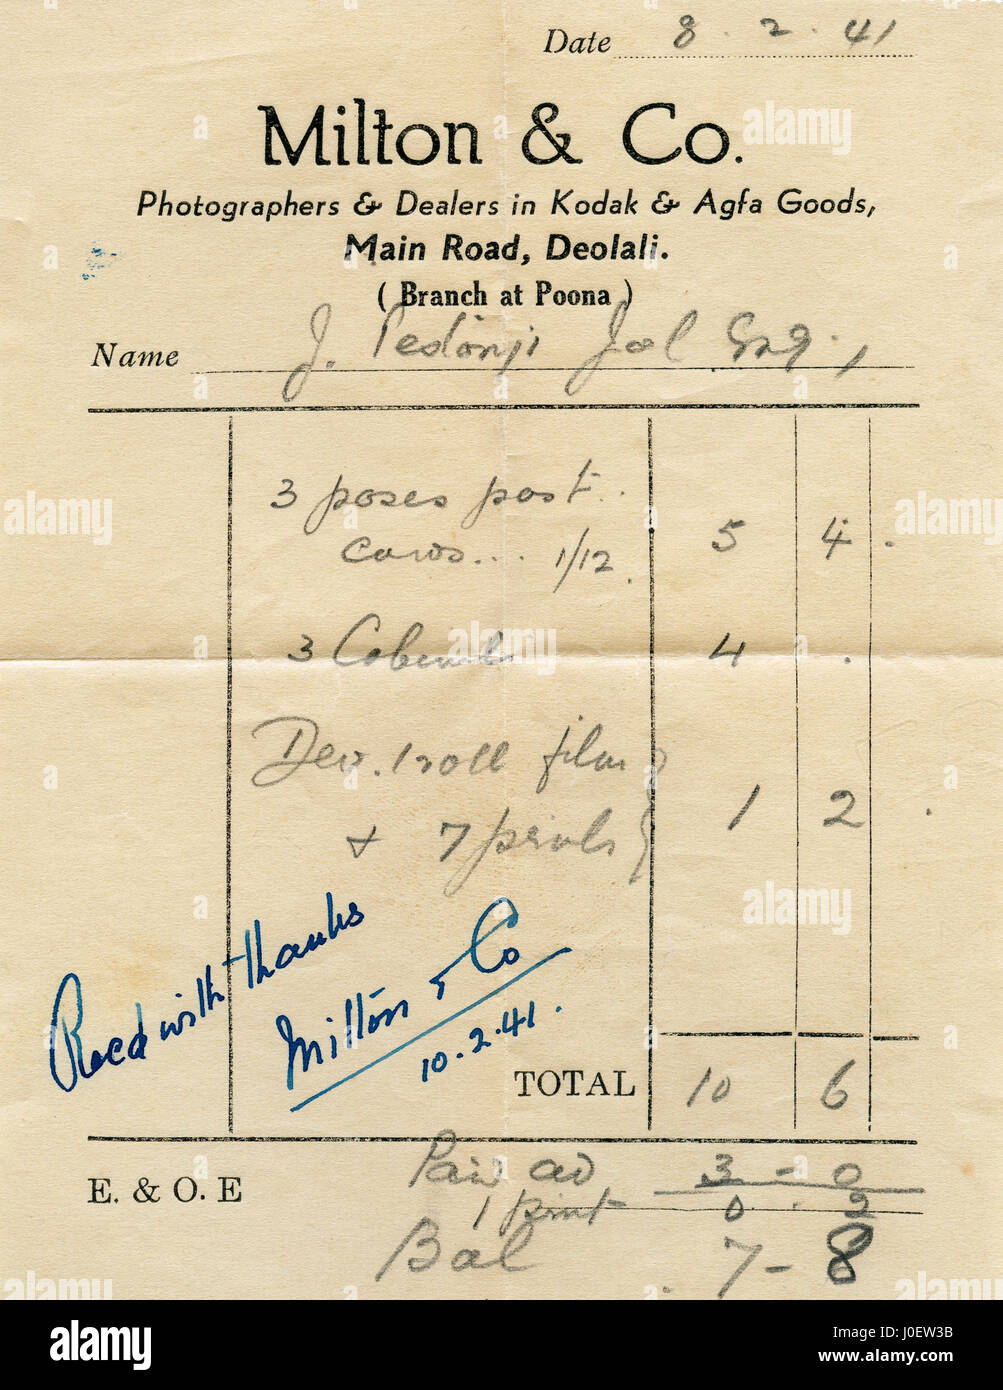 Date 8. 2. 41
Milton & Co.
Photographers & Dealers in Kodak & Agfa Goods,
Main Road, Deolali.
( Branch at Poona )
Name J. Pestonji Esq.,
3 poses post..
cards... 1/12. 5 4.
3 Cabinets 4 .
Dev. 1 roll film
+ 7 prints } 1 2 .
Recd with thanks
Milton & Co
10.2.41.
TOTAL 10 6
E. & O. E Paid ad 3 - 0
1 print 0 . 2
Bal 7 - 8
alamy
Image ID: J0EW3B
www.alamy.com